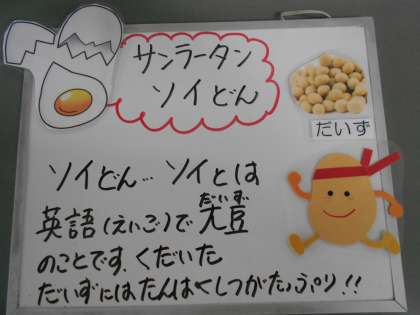 サンラータン
ソイどん
だいず
ソイどん… ソイとは
英語(えいご)で大豆
だいず
のことです。くだいた
だいずにはたんぱくしつがたっぷり!!